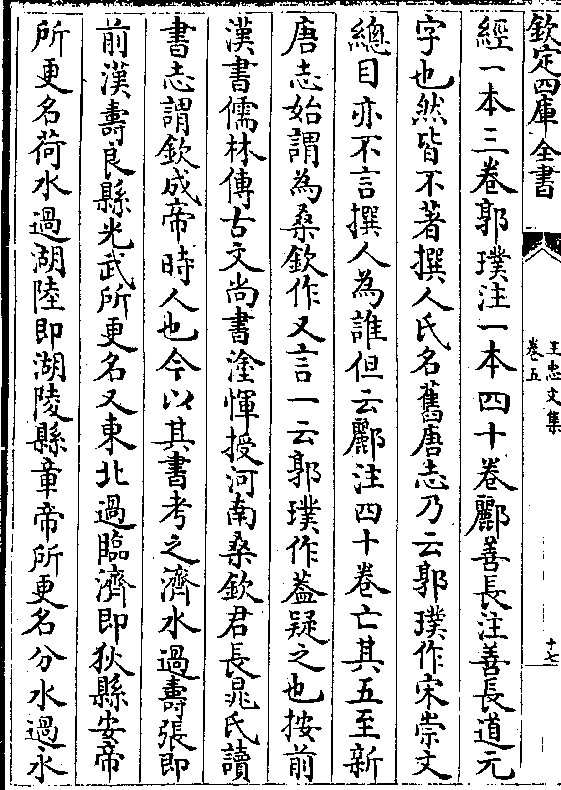 欽定四庫全書
王忠文集
卷五
十七
經一本三卷郭璞注一本四十卷酈善長注善長道元
字也然皆不著撰人氏名舊唐志乃云郭璞作宋崇文
總目亦不言撰人為誰但云酈注四十卷亡其五至新
唐志始謂為桑欽作又言一云郭璞作蓋疑之也按前
漢書儒林傳古文尚書塗惲授河南桑欽君長晁氏讀
書志謂欽成帝時人也今以其書考之濟水過壽張即
前漢壽良縣光武所更名又東北過臨濟即狄縣安帝
所更名荷水過湖陸即湖陵縣章帝所更名分水過永